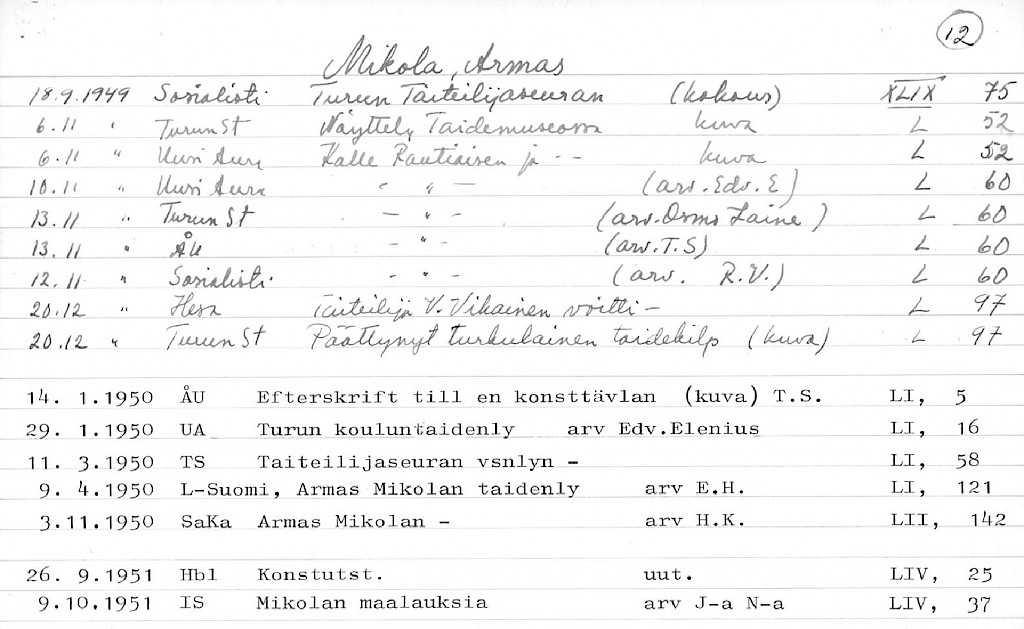 12
Mikola, Armas
18.9.1949 Sosialisti Turun Taiteilijaseuran (kokous) XLIX 75
6.11 " Turun St Näyttely Taidemuseossa kuva L 52
6.11 " Uusi Aura Kalle Rautiaisen ja - - kuva L 52
10.11 " Uusi Aura - " - (arv. Edv. E) L 60
13.11 " Turun St - " - (arv. Osmo Laine) L 60
13.11 " ÅU - " - (arv. T.S) L 60
12.11 " Sosialisti - " - (arv. R.V.) L 60
20.12 " Hesa Taiteilija V. Vikainen voitti - L 97
20.12 " Turun St Päättynyt turkulainen taidekilp (kuva) L 97
14. 1.1950 ÅU Efterskrift till en konsttävlan (kuva) T.S. LI, 5
29. 1.1950 UA Turun kouluntaidenly arv Edv.Elenius LI, 16
11. 3.1950 TS Taiteilijaseuran vsnlyn - LI, 58
9. 4.1950 L-Suomi, Armas Mikolan taidenly arv E.H. LI, 121
3.11.1950 SaKa Armas Mikolan - arv H.K. LII, 142
26. 9.1951 Hbl Konstutst. uut. LIV, 25
9.10.1951 IS Mikolan maalauksia arv J-a N-a LIV, 37